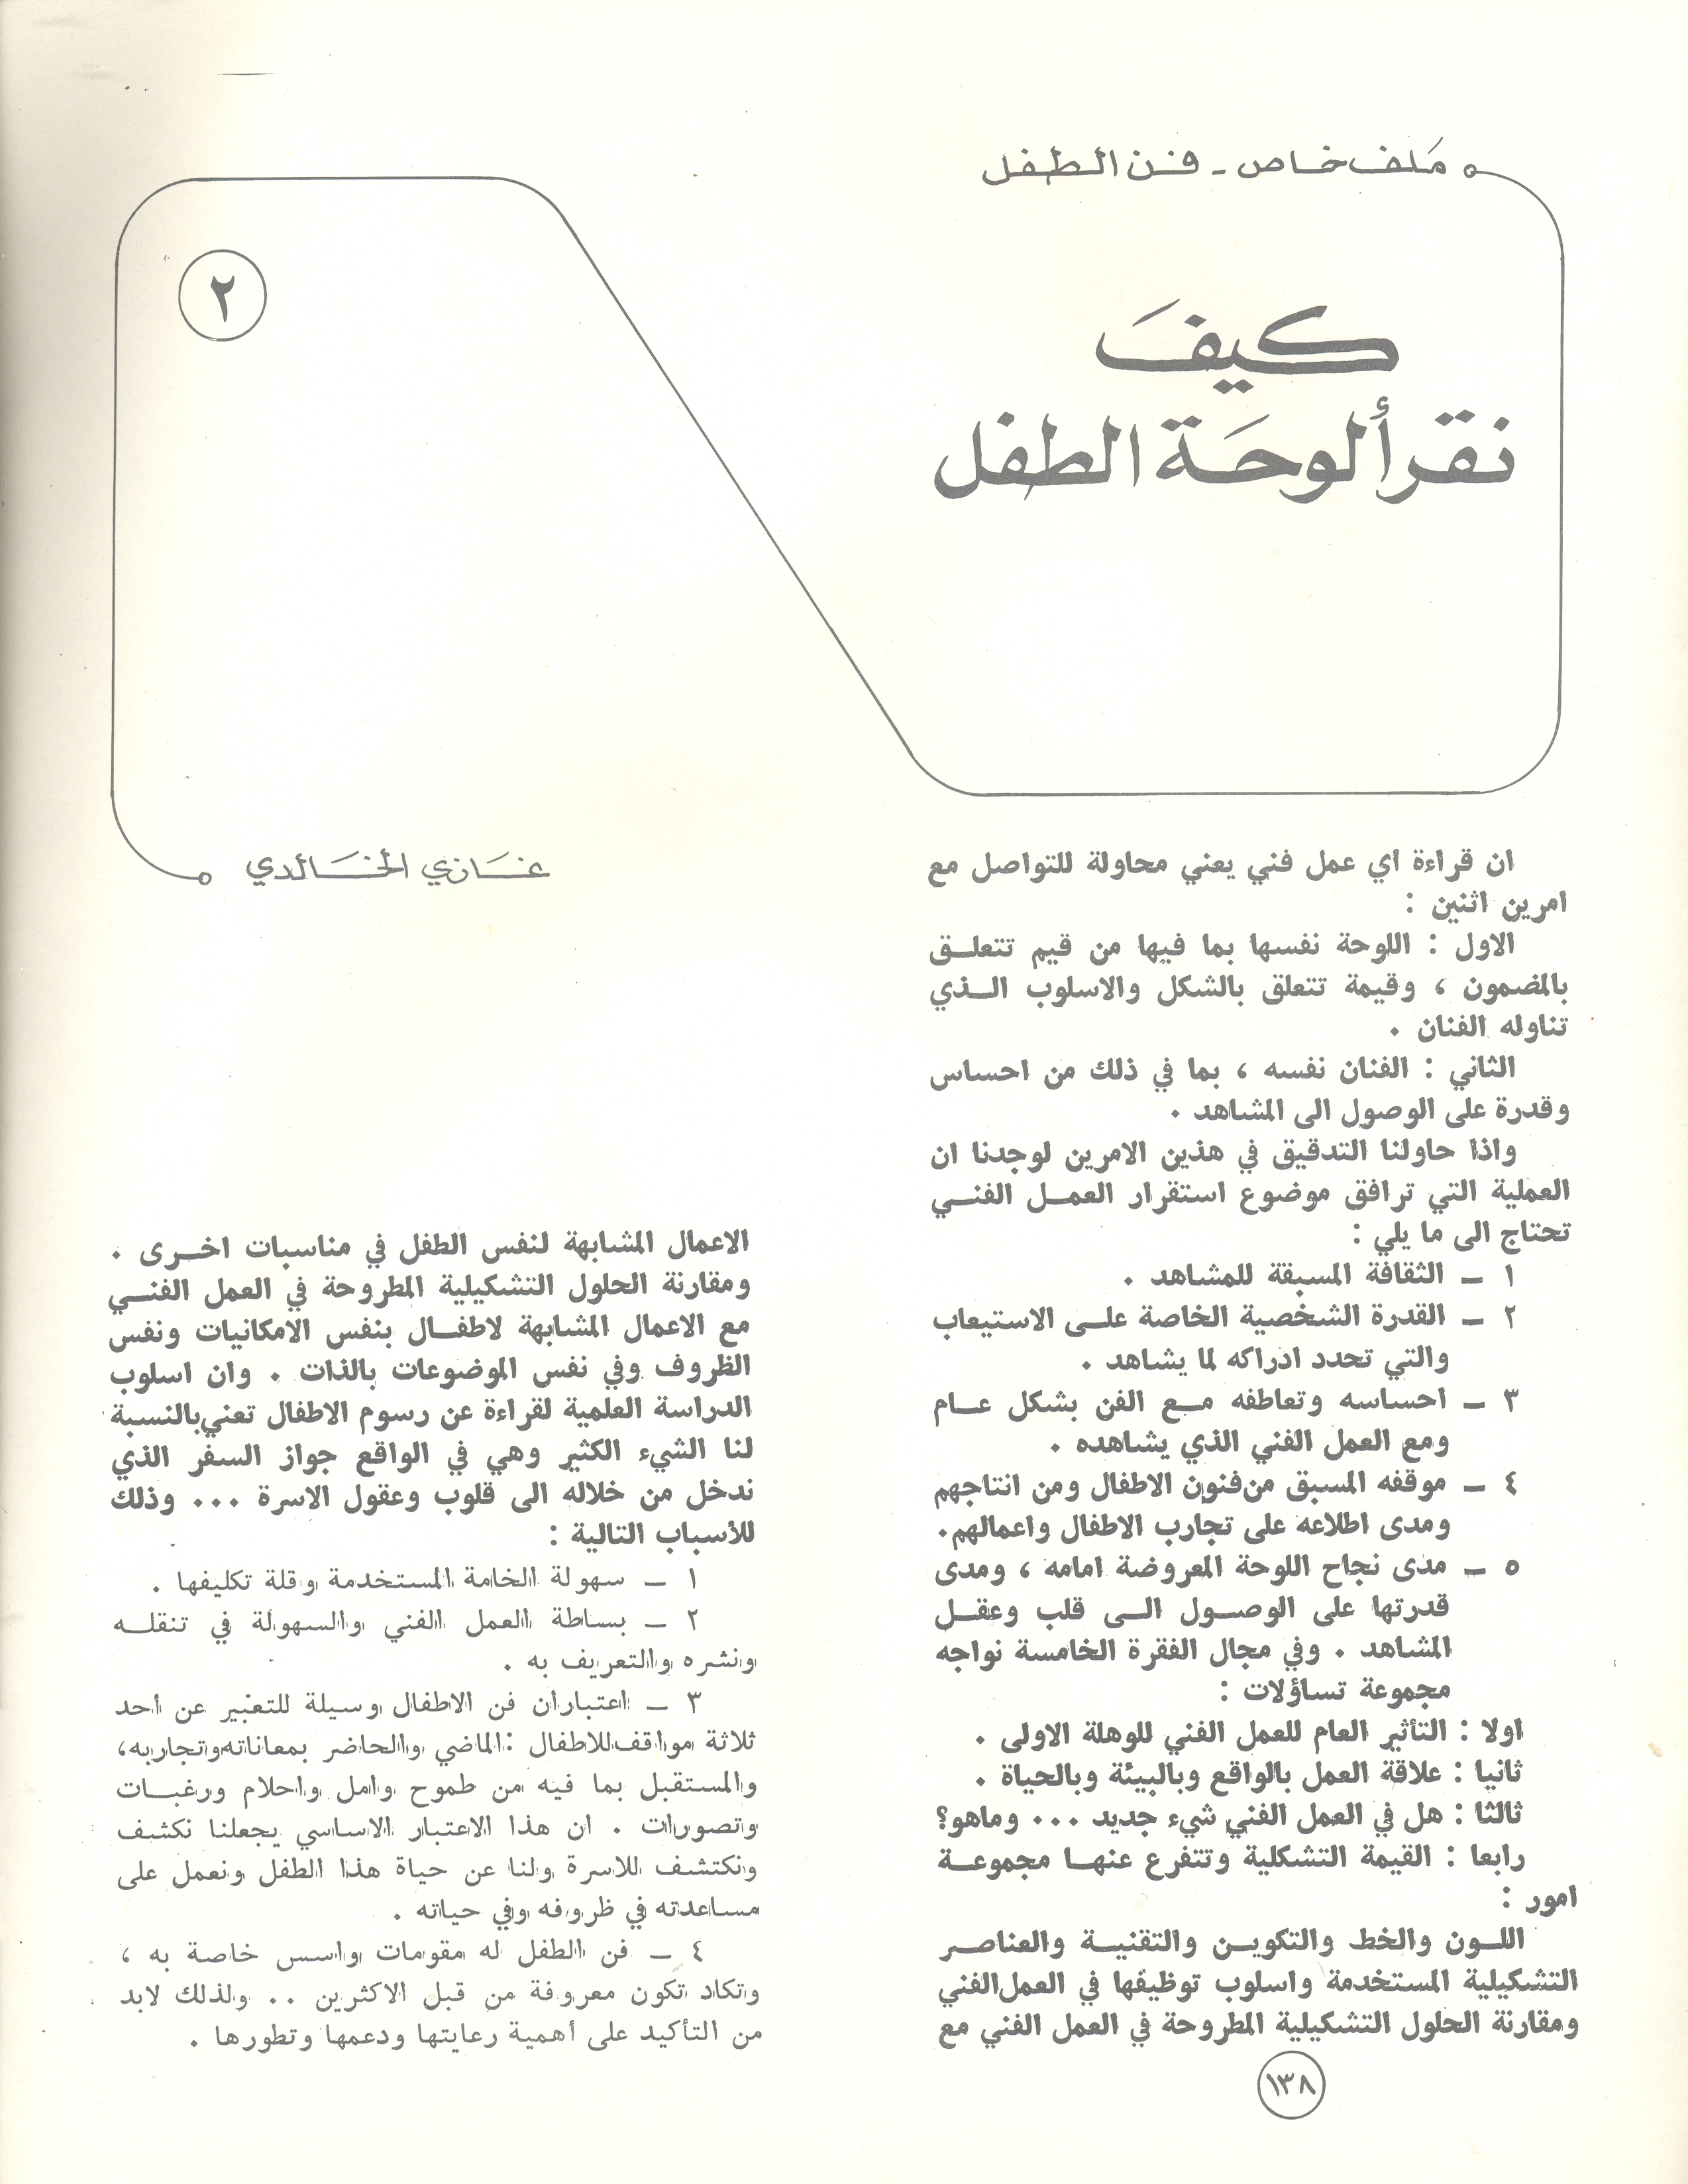 مَلف خاص - فن الطفل
٢
كيفَ
نقرأ لوحَة الطفل
غَازي الخَالدي
ان قراءة اي عمل فني يعني محاولة للتواصل مع
امرين اثنين :
الاول : اللوحة نفسها بما فيها من قيم تتعلق
بالمضمون ، وقيمة تتعلق بالشكل والاسلوب الذي
تناوله الفنان .
الثاني : الفنان نفسه ، بما في ذلك من احساس
وقدرة على الوصول الى المشاهد .
واذا حاولنا التدقيق في هذين الامرين لوجدنا ان
العملية التي ترافق موضوع استقرار العمل الفني
تحتاج الى ما يلي :
١ – الثقافة المسبقة للمشاهد .
٢ – القدرة الشخصية الخاصة على الاستيعاب
والتي تحدد ادراكه لما يشاهد .
٣ – احساسه وتعاطفه مع الفن بشكل عام
ومع العمل الفني الذي يشاهده .
٤ – موقفه المسبق من فنون الاطفال ومن انتاجهم
ومدى اطلاعه على تجارب الاطفال واعمالهم.
٥ – مدى نجاح اللوحة المعروضة امامه ، ومدى
قدرتها على الوصول الى قلب وعقل
المشاهد . وفي مجال الفقرة الخامسة نواجه
مجموعة تساؤلات :
اولا : التأثير العام للعمل الفني للوهلة الاولى .
ثانيا : علاقة العمل بالواقع وبالبيئة وبالحياة .
ثالثا : هل في العمل الفني شيء جديد ... وماهو؟
رابعا : القيمة التشكلية وتتفرع عنها مجموعة
امور :
اللون والخط والتكوين والتقنية والعناصر
التشكيلية المستخدمة واسلوب توظيفها في العمل الفني
ومقارنة الحلول التشكيلية المطروحة في العمل الفني مع
الاعمال المشابهة لنفس الطفل في مناسبات اخرى .
ومقارنة الحلول التشكيلية المطروحة في العمل الفني
مع الاعمال المشابهة لاطفال بنفس الامكانيات ونفس
الظروف وفي نفس الموضوعات بالذات . وان اسلوب
الدراسة العلمية لقراءة عن رسوم الاطفال تعني بالنسبة
لنا الشيء الكثير وهي في الواقع جواز السفر الذي
ندخل من خلاله الى قلوب وعقول الاسرة ... وذلك
للأسباب التالية :
١ – سهولة الخامة المستخدمة وقلة تكليفها .
٢ – بساطة العمل الفني والسهولة في تنقله
ونشره والتعريف به .
٣ – اعتباران فن الاطفال وسيلة للتعبير عن احد
ثلاثة مواقف للاطفال : الماضي والحاضر بمعاناته وتجاربه،
والمستقبل بما فيه من طموح وامل واحلام ورغبات
وتصورات . ان هذا الاعتبار الاساسي يجعلنا نكشف
ونكتشف للاسرة ولنا عن حياة هذا الطفل ونعمل على
مساعدته في ظروفه وفي حياته .
٤ – فن الطفل له مقومات واسس خاصة به ،
وتكاد تكون معروفة من قبل الاكثرين .. ولذلك لابد
من التأكيد على أهمية رعايتها ودعمها وتطورها .
١٣٨